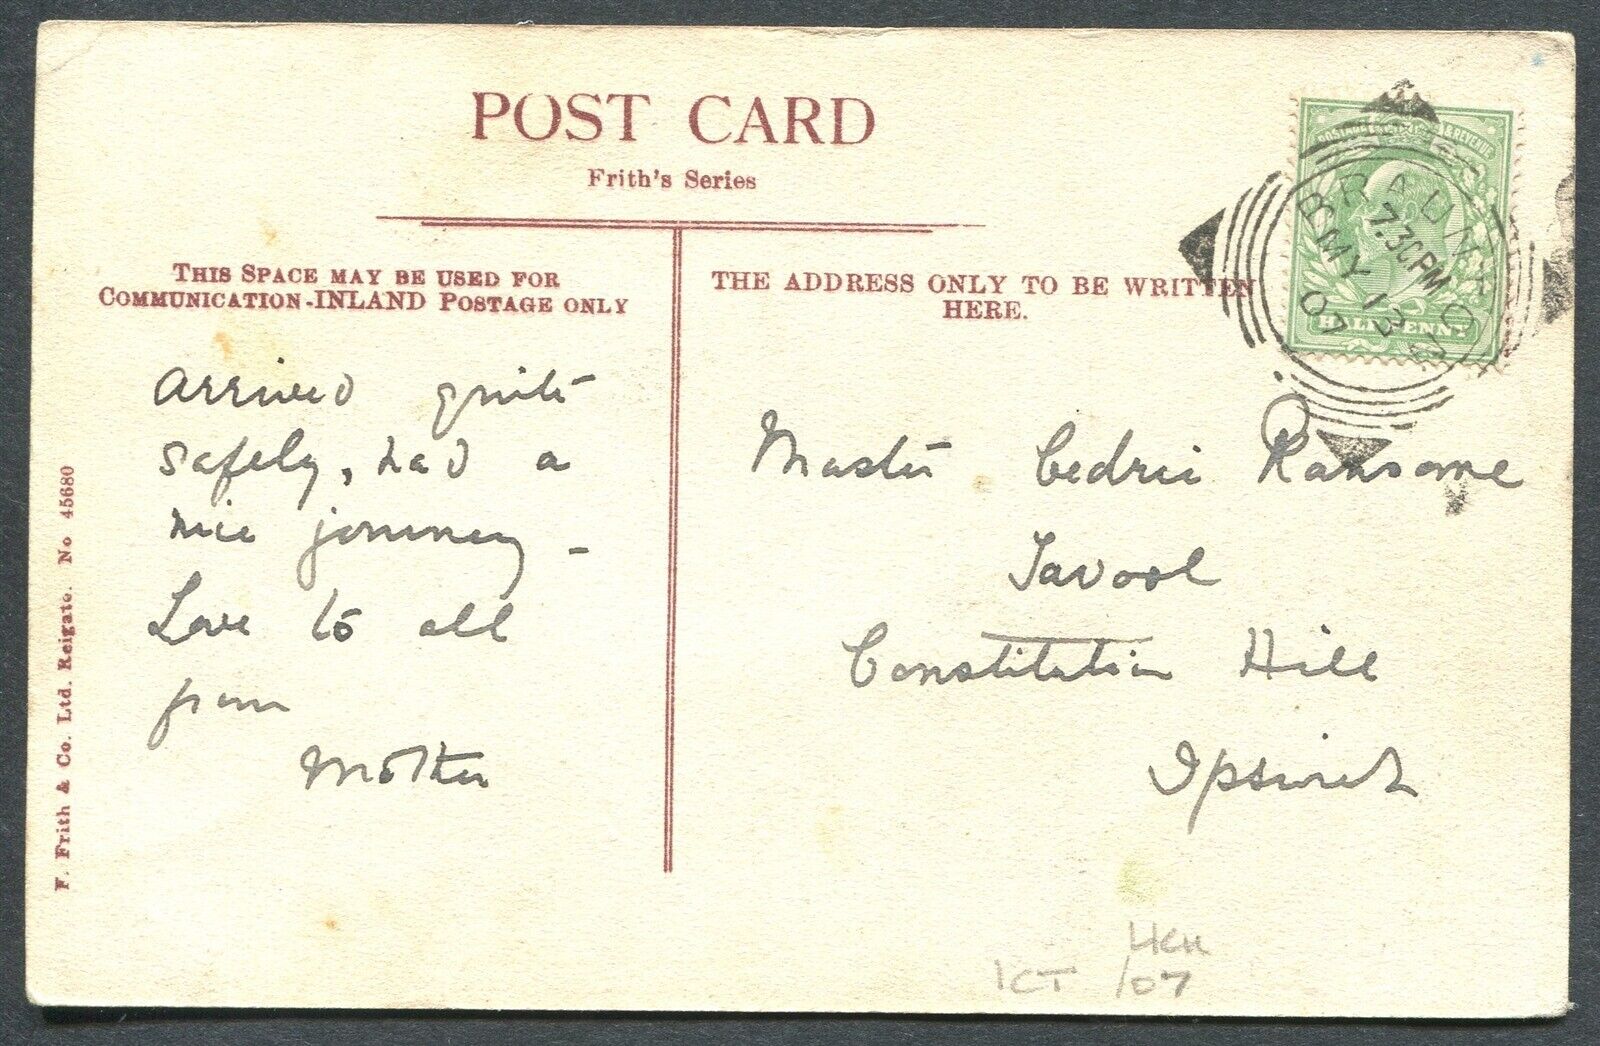 POST CARD
Frith's Series
THIS SPACE MAY BE USED FOR
COMMUNICATION-INLAND POSTAGE ONLY
THE ADDRESS ONLY TO BE WRITTEN
HERE.
POSTAGE & REVENUE
HALFPENNY
BRAUNTON
7.30PM
MY 13
07
Arrived quite
safely, had a
nice journey –
Love to all
from
Mother
Master Cedric Ransome
Constitution Hill
Ipswich
F. Frith & Co. Ltd. Reigate. No 45680
/07